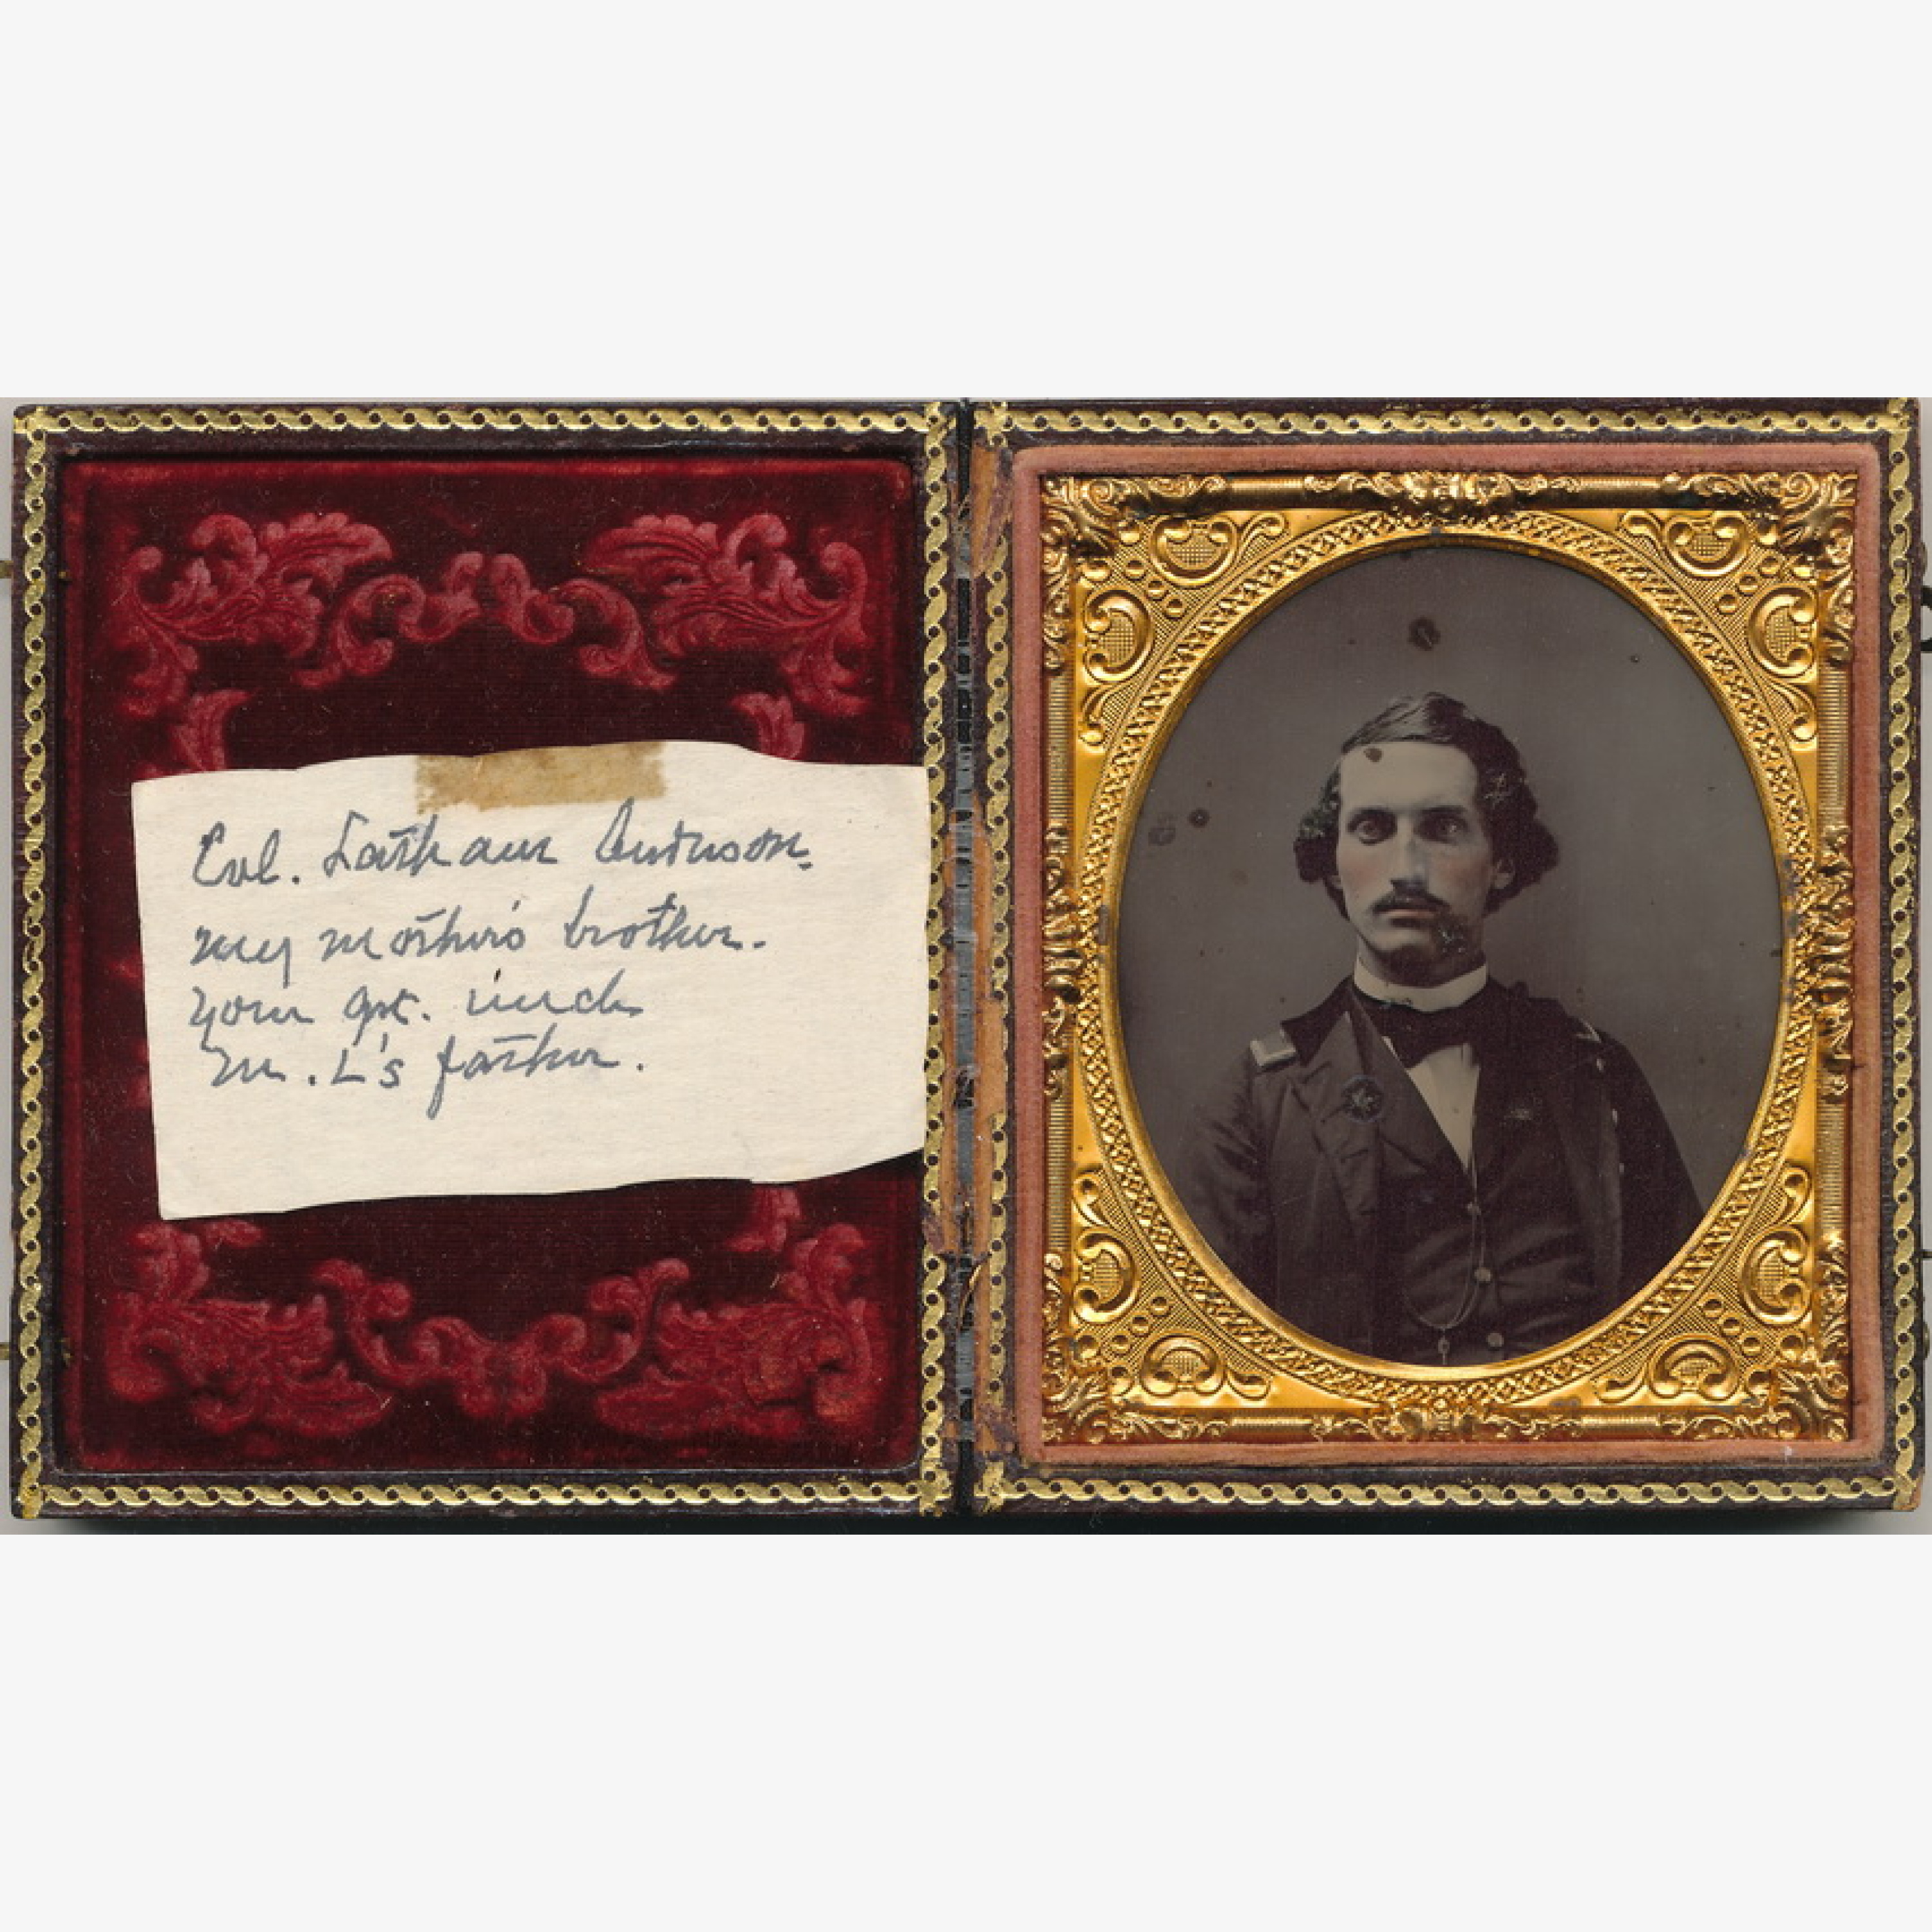 Col. Latham Anderson.
my mother's brother.
your grt. uncle
M. L's father.